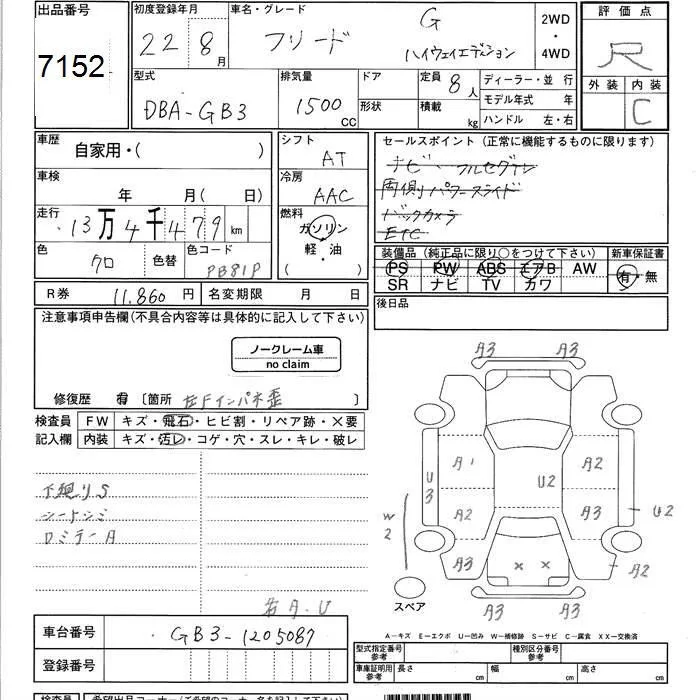 出品番号
7152
初度登録年月
22 8月
車名・グレード
フリード G ハイウェイエディション
2WD
・
4WD
評価点
R
外装 内装
C
型式
DBA-GB3
排気量
1500 CC
ドア
形状
定員 8人
積載 kg
ディーラー・並行
モデル年式 年
ハンドル 左・右
車歴
自家用・( )
車検
年 月( 日)
走行
13万4千479km
色
クロ
色替
色コード
PB81P
シフト
AT
冷房
AAC
燃料
ガソリン
軽・油
( ・ )
セールスポイント(正常に機能するものに限ります)
ナビ・フルセグテレ
両側パワースライド
バックカメラ
ETC
装備品(純正品に限り○をつけて下さい)
PS PW ABS エアB AW
SR ナビ TV カワ
新車保証書
有・無
後日品
R券 11,860円
名変期限 月 日
注意事項申告欄(不具合内容等は具体的に記入して下さい)
ノークレーム車
no claim
修復歴 有 〔箇所 左Fインパネ歪 〕
検査員
記入欄
FW キズ・飛石・ヒビ割・リペア跡・×要
内装 キズ・汚レ・コゲ・穴・スレ・キレ・破レ
下廻りS
シートシミ
ロミラーA
右A.U
A3 A3
A1 A2
U3 U2 U2
A2 A3
W2
A3 × × A3
A3 A3
スペア
A-キズ E-エクボ U-凹み W-補修跡 S-サビ C-腐食 XX-交換済
車台番号 GB3-1205087
登録番号
型式指定番号
参考
種別区分番号
参考
車庫証明用
参考
長さ cm 幅 cm 高さ cm
検査員
希望出品コーナー(ご希望のコーナー名を記入下さい)